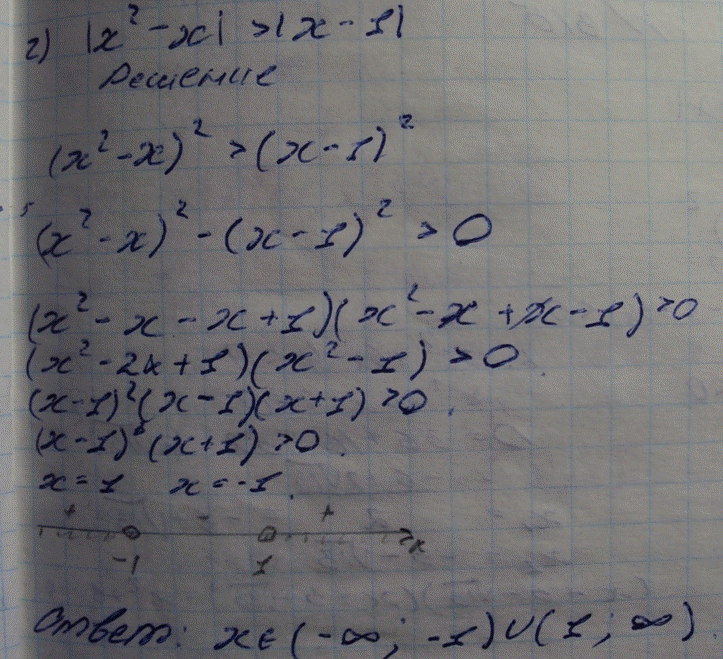 2) |x² - x| > |x - 1|
Решение
(x² - x)² > (x - 1)²
(x² - x)² - (x - 1)² > 0
(x² - x - x + 1)(x² - x + x - 1) > 0
(x² - 2x + 1)(x² - 1) > 0
(x - 1)²(x - 1)(x + 1) > 0.
(x - 1)³(x + 1) > 0.
x = 1 x = -1.
+ - + x
-1 1
Ответ: x ∈ (-∞; -1) ∪ (1; ∞).